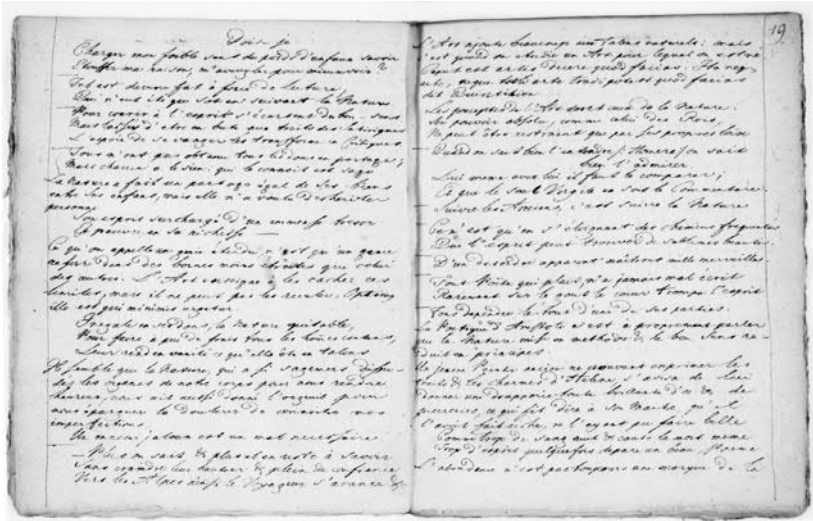 Dois je
Charger mon foible sens du poids d'un faux savoir
Etouffer ma raison, m'aveugler pour mieux voir ?
Tel est devenu fat à force de lecture,
Qui n'eut été que sot en suivant la Nature
Pour courir à l'esprit s'écarte du bon sens
Mais d'etre en bute aux traits des Satiriques
L'espoir de se vanger les transforme en Critiques
Tous n'ont pas obtenu tous les dons en partage;
Mais chacun a le sien: qui le connoit est sage
La Nature a fait un partage égal de ses Biens
entre ses enfans, mais elle n'a voulu desheriter
personne
Son esprit surchargé d'un immense tresor
Est pauvre en sa richesse —
Ce qu'on appelle un genie étendu, n'est qu'un genie
resserré dans des bornes moins étroites que celui
des autres. L'Art enseigne à les cacher ces
limites; mais il ne peut pas les reculer. Optimus
ille est qui minimis urgetur.
Inegale en ses dons, la Nature equitable,
Pour faire à peu de frais tous les hommes contens,
Leur rend en vanité ce qu'elle ôte en talens
Il semble que la Nature, qui a si sagement disposé
les organes de notre corps pour nous rendre
heureux, nous ait aussi donné l'orgueil pour
nous épargner la douleur de connoitre nos
imperfections.
Un ennemi jaloux est un mal necessaire
— Plus on sait, & plus on veut à savoir
Sans craindre leur hauteur & plein de confiance
Vers les Alpes ainsi le Voyageur s'avance &c
19
L'Art ajoute beaucoup aux talens naturels: mais
c'est quand on étudie un Art pour lequel on est né
Caput est artis decere quod facias. Ita neque
sine arte, neque tota arte tradi potest quod facias
dit Quintilien
Les preceptes de l'Art sont ceux de la Nature.
Un pouvoir absolu, comme celui des Rois,
Ne peut être restraint que par ses propres loix
Quand on sait bien l'entendre (: Homere) on sait
bien l'admirer.
Lui même avec lui il faut le comparer;
Et que le seul Virgile en soit le Commentaire.
Suivre les Anciens, c'est suivre la Nature
Ce n'est qu'en s'éloignant des chemins frequentés
Que l'esprit peut trouver de sublimes beautés.
D'un desordre apparent naitront mille merveilles.
Tout Poëte qui plait, n'a jamais mal écrit
Rarement sur le gout le coeur trompe l'esprit
du tout d'une de ses parties.
La Poëtique d'Aristote n'est à proprement parler
que la Nature mise en methode & le bon sens re-
duit en principes.
Un jeune Peintre ancien ne pouvant exprimer les
traits & les charmes d'Helene, s'avisa de lui
donner une draperie toute brillante d'or & de
pierreries, ce qui fit dire à son Maitre, qu'il
l'avoit fait riche, ne l'ayant pu faire belle
Comme trop de sang nuit & cause la mort même
Trop d'esprit quelquefois depare un beau Poeme
L'abondance n'est pas toujours une marque de la